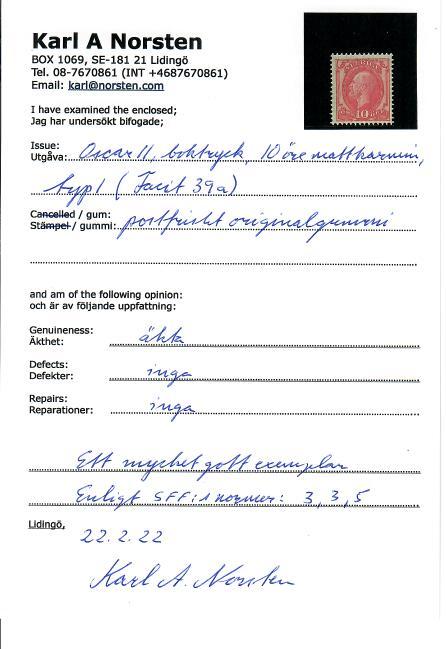 Karl A Norsten
BOX 1069, SE-181 21 Lidingö
Tel. 08-7670861 (INT +4687670861)
Email: karl@norsten.com
I have examined the enclosed;
Jag har undersökt bifogade;
Issue:
Utgåva: Oscar II, boktryck, 10 öre mattkarmin,
typ I (Facit 39a)
Cancelled / gum:
Stämpel / gummi: postfriskt originalgummi
and am of the following opinion:
och är av följande uppfattning:
Genuineness:
Äkthet: äkta
Defects:
Defekter: inga
Repairs:
Reparationer: inga
Ett mycket gott exemplar
Enligt SFF:s normer: 3, 3, 5
Lidingö,
22.2.22
Karl A. Norsten